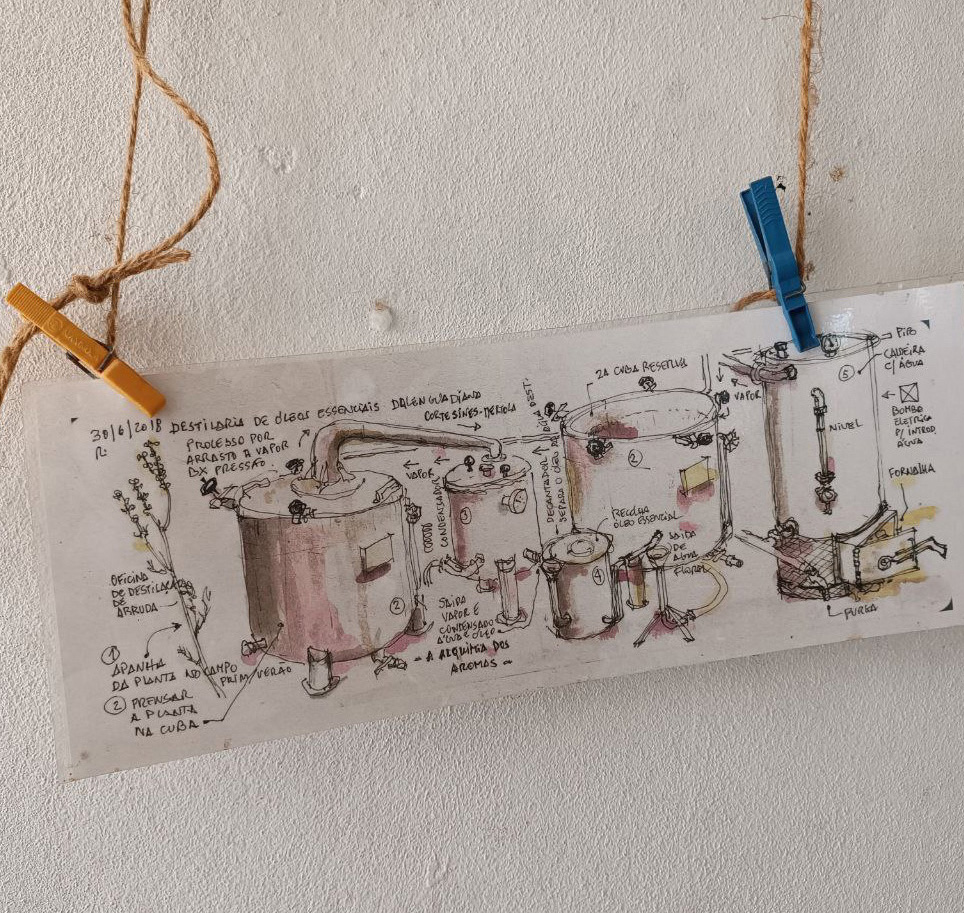 30/6/2018 DESTILARIA DE ÓLEOS ESSENCIAIS DALENGUADIANO
CORTESINES-MERTOLA
PROCESSO POR
ARRASTO A VAPOR
BX PRESSÃO
OFICINA
DE DESTILAÇÃO
DE
ARRUDA
1
APANHA
DA PLANTA NO CAMPO
PRIM. VERÃO
2 PRENSAR
A PLANTA
NA CUBA
2
VAPOR
CONDENSADOR
3
SAIDA
VAPOR E
CONDENSADO
ÁGUA E ÓLEO
- A ALQUIMIA DOS
AROMAS -
DECANTADOR
SEPARA O ÓLEO DA ÁGUA DEST.
2A CUBA RESERVA
2
RECOLHA
ÓLEO ESSENCIAL
4
SAIDA
DE
AGUA
FLORAL
VAPOR
PIPO
CALDEIRA
C/ ÁGUA
5
BOMBA
ELETRICA
P/ INTROD.
ÁGUA
NIVEL
FORNALHA
PURGA